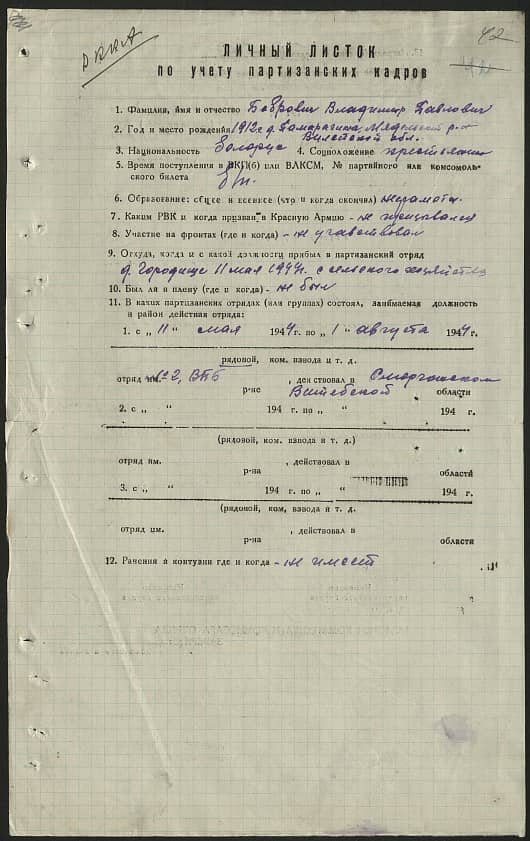 РККА
42
ЛИЧНЫЙ ЛИСТОК
по учету партизанских кадров
1. Фамилия, имя и отчество Бобрович Владимир Павлович
2. Год и место рождения 1912 г. д. Мядельский р-н
Вилейской обл.
3. Национальность белорус 4. Соцположение крестьянин
5. Время поступления в ВКП(б) или ВЛКСМ, № партийного или комсомоль-
ского билета б/п.
6. Образование: общее и военное (что и когда окончил) неграмотн.
7. Каким РВК и когда призван в Красную Армию - не призывался
8. Участие на фронтах (где и когда) - не участвовал
9. Откуда, когда и с какой должности прибыл в партизанский отряд
д. Городище 11 мая 1944 г. с сельского хозяйства
10. Был ли в плену (где и когда) - не был
11. В каких партизанских отрядах (или группах) состоял, занимаемая должность
и район действия отряда:
1. с „ 11 " мая 1944 г. по „ 1 " августа 1944 г.
рядовой, ком. взвода и т. д.
отряд им. №2, , действовал в Сморгонском
р-не Витебской области
2. с „ " 194 г. по „ " 194 г.
(рядовой, ком. взвода и т. д.)
отряд им. , действовал в
р-на области
3. с „ " 194 г. по „ " 194 г.
(рядовой, ком. взвода и т. д.
отряд им. , действовал в
р-на области
12. Ранения и контузии где и когда - не имеет